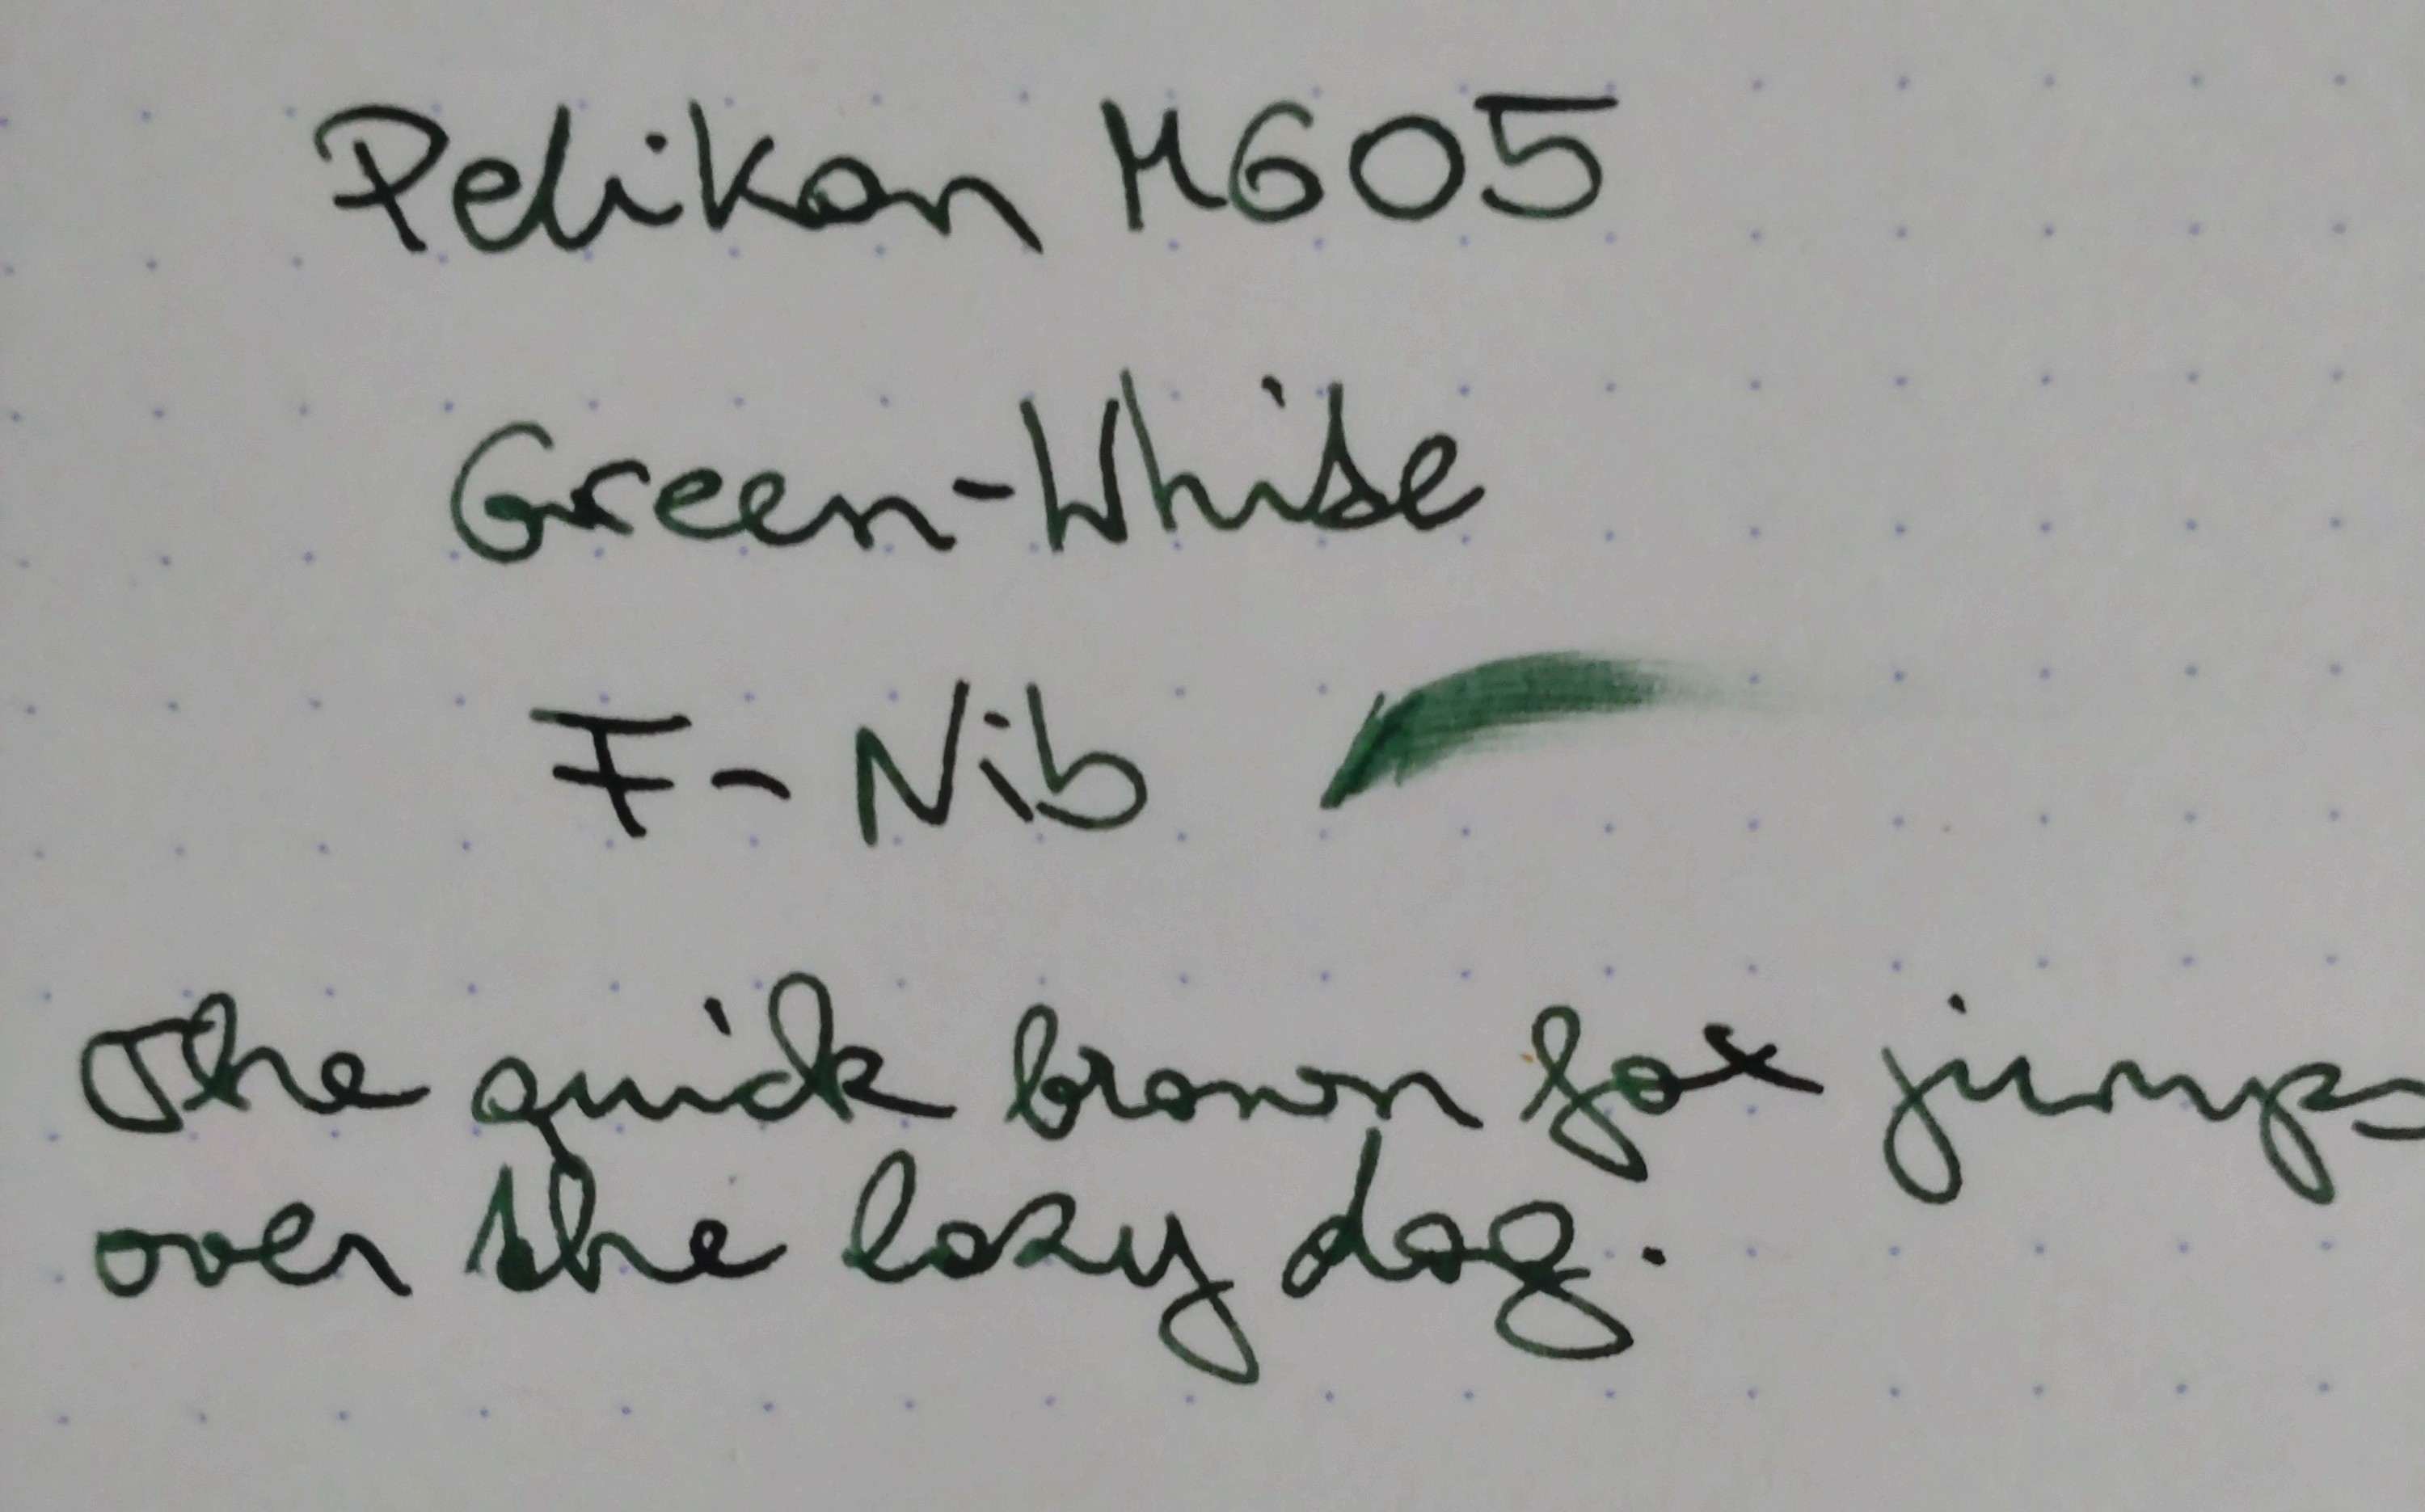 Pelikan M605
Green-White
F-Nib
The quick brown fox jumps
over the lazy dog.